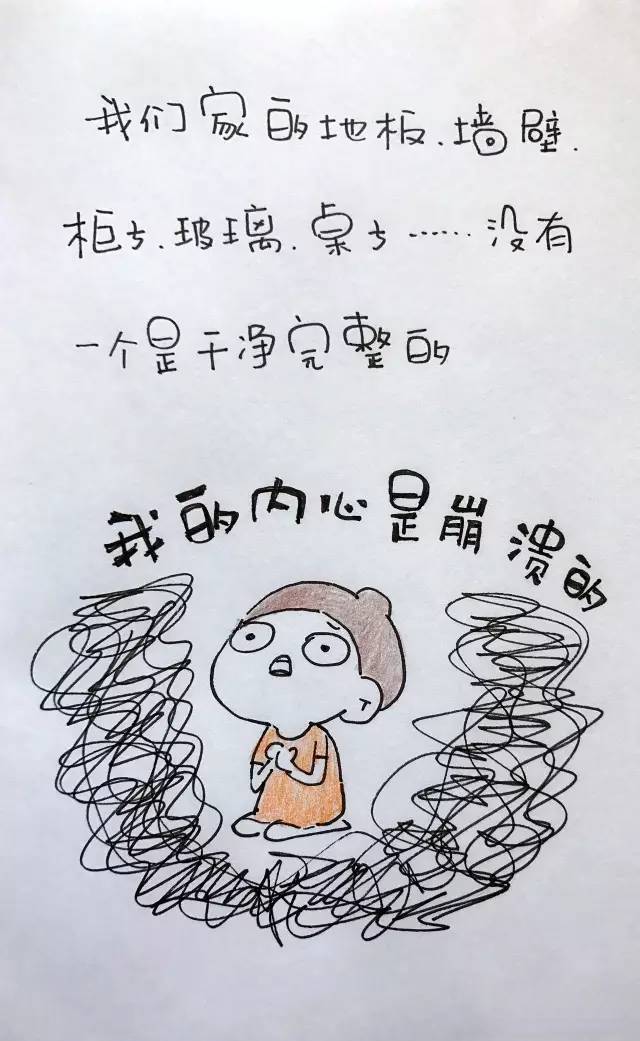 我们家的地板、墙壁、
柜子、玻璃、桌子……没有
一个是干净完整的
我的内心是崩溃的